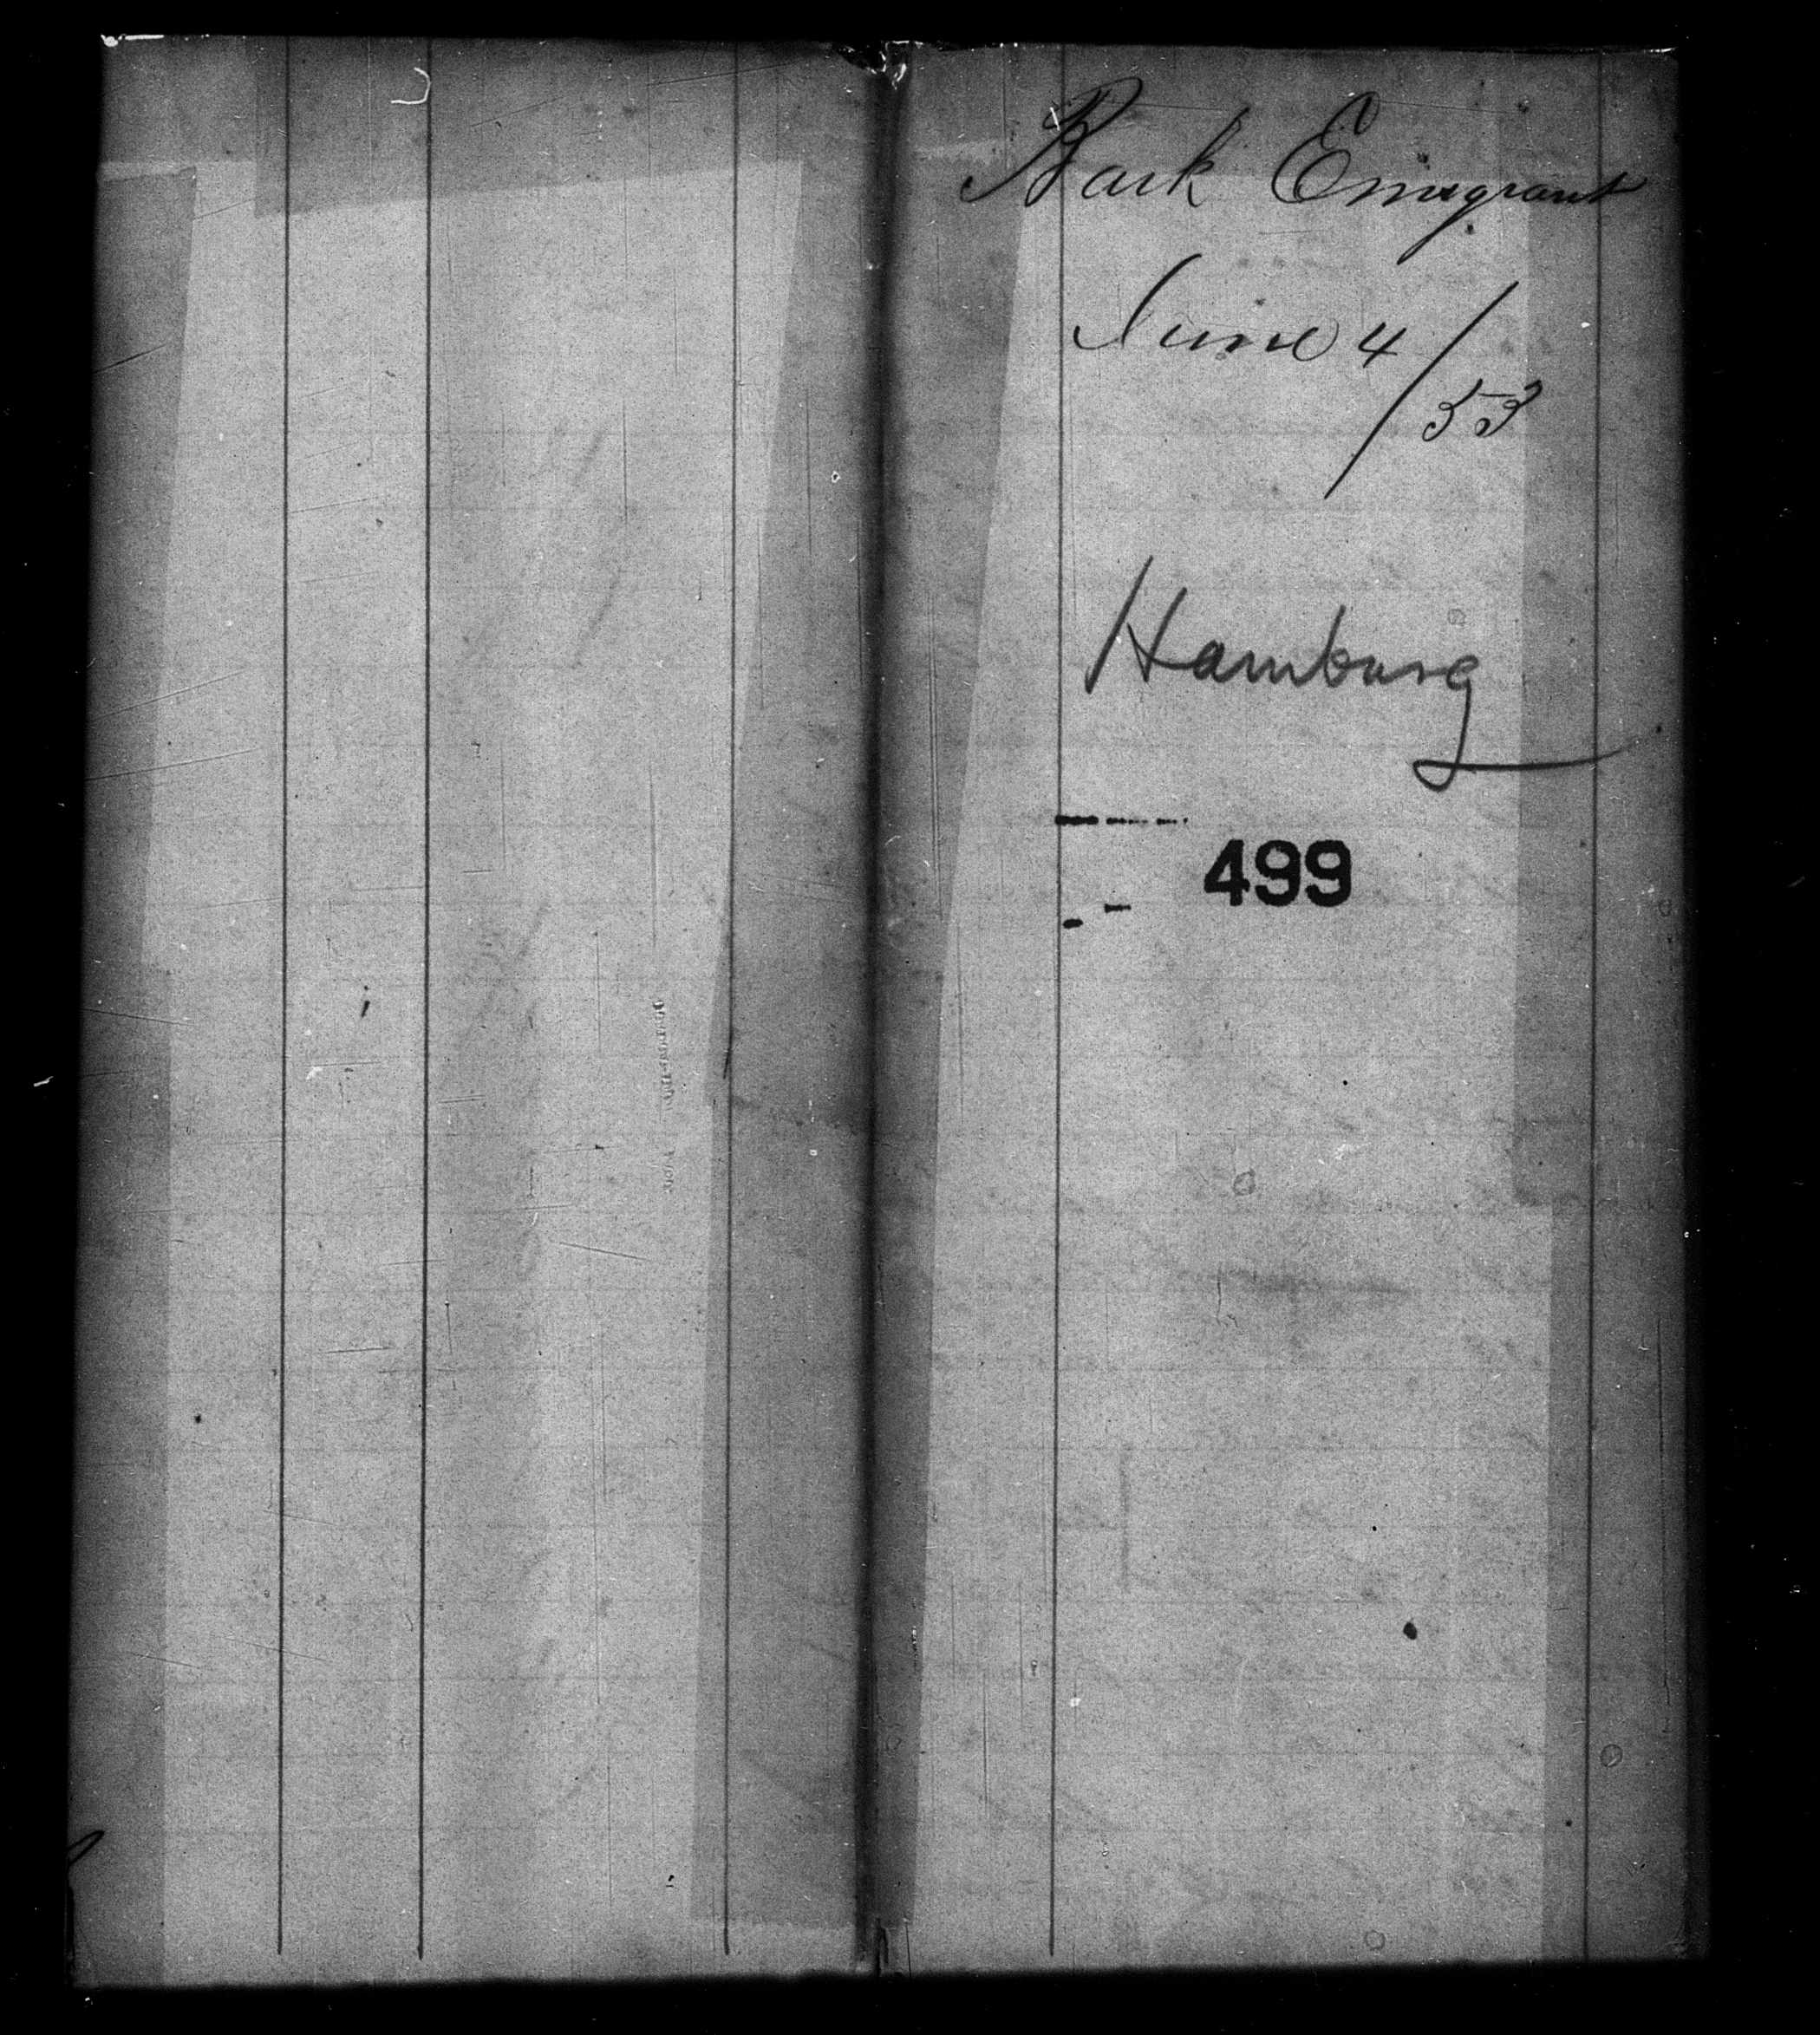 Bark Emigrant
June 4/53
Hamburg
499